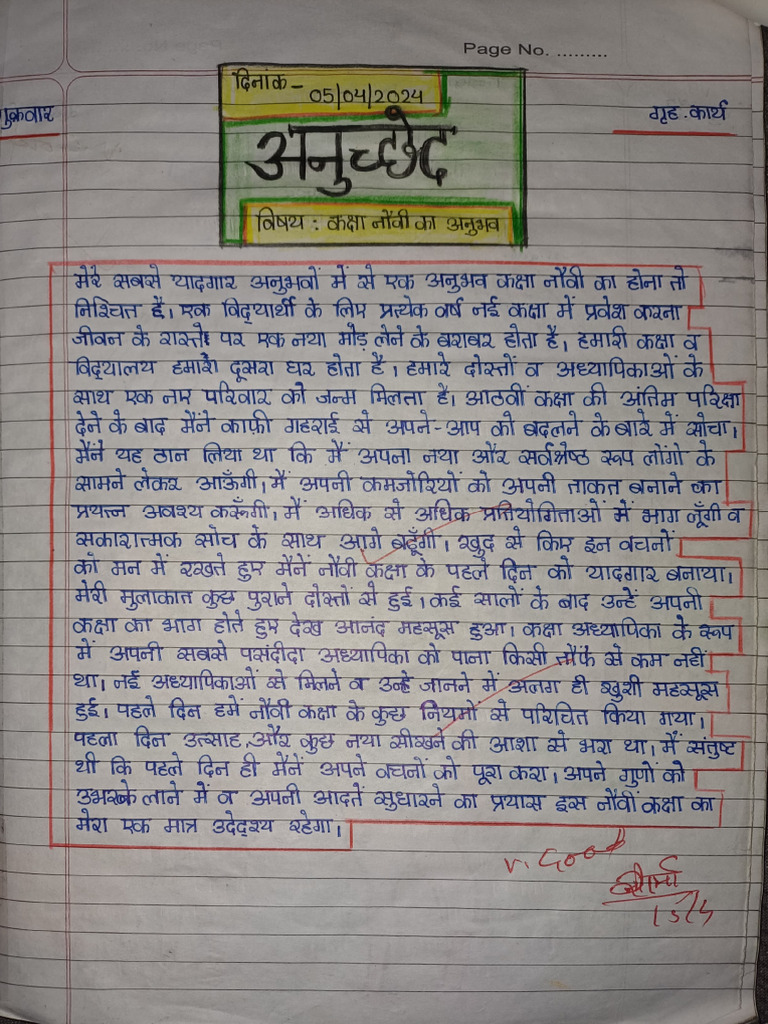 Page No. .........
दिनांक - 05/04/2024
शुक्रवार
गृह.कार्य
अनुच्छेद
विषय : कक्षा नौंवी का अनुभव
मेरे सबसे यादगार अनुभवों में से एक अनुभव कक्षा नौंवी का होना तो
निश्चित है। एक विद्यार्थी के लिए प्रत्येक वर्ष नई कक्षा में प्रवेश करना
जीवन के रास्ते पर एक नया मोड़ लेने के बराबर होता है। हमारी कक्षा व
विद्यालय हमारा दूसरा घर होता है। हमारे दोस्तों व अध्यापिकाओं के
साथ एक नए परिवार को जन्म मिलता है। आठवीं कक्षा की अंतिम परिक्षा
देने के बाद मैंने काफ़ी गहराई से अपने-आप को बदलने के बारे में सोचा।
मैंने यह ठान लिया था कि मैं अपना नया और सर्वश्रेष्ठ रूप लोंगो के
सामने लेकर आऊँगी। मैं अपनी कमजोरियों को अपनी ताकत बनाने का
प्रयत्न अवश्य करूँगी। मैं अधिक से अधिक प्रतियोगिताओं में भाग लूँगी व
सकारात्मक सोच के साथ आगे बढूँगी। खुद से किए इन वचनों
को मन में रखते हुए मैनें नौंवी कक्षा के पहले दिन को यादगार बनाया।
मेरी मुलाकात कुछ पुराने दोस्तों से हुई। कई सालों के बाद उन्हें अपनी
कक्षा का भाग होते हुए देख आनंद महसूस हुआ। कक्षा अध्यापिका के रूप
में अपनी सबसे पसंदीदा अध्यापिका को पाना किसी तौफे से कम नहीं
था। नई अध्यापिकाओं से मिलने व उन्हे जानने में अलग ही खुशी महसूस
हुई। पहले दिन हमें नौवी कक्षा के कुछ नियमों से परिचित किया गया।
पहला दिन उत्साह, और कुछ नया सीखने की आशा से भरा था। मैं संतुष्ट
थी कि पहले दिन ही मैनें अपने वचनों को पूरा करा। अपने गुणों को
उभरके लाने में व अपनी आदतें सुधारने का प्रयास इस नौवी कक्षा का
मेरा एक मात्र उदेद्श्य रहेगा।
v. Good
15/4